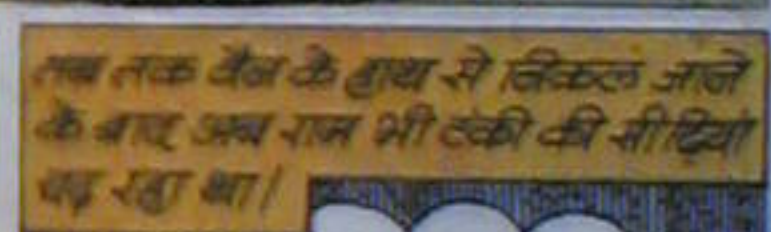 तब तक वैन के हाथ से निकल जाने
के बाद अब राज भी टंकी की सीढ़ियां
चढ़ रहा था।